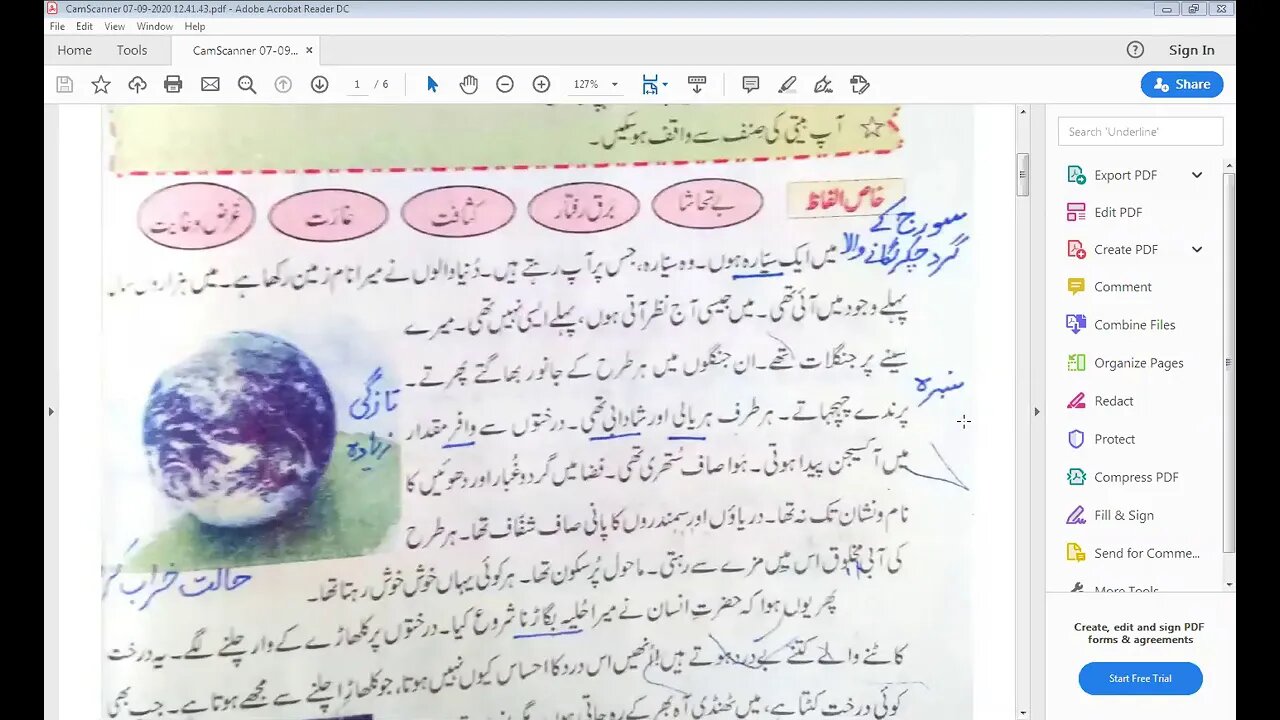 CamScanner 07-09-2020 12.41.43.pdf - Adobe Acrobat Reader DC
File Edit View Window Help
Home Tools CamScanner 07-09... × Sign In
1 / 6 127% Share
☆ آپ بیتی کی صنف سے واقف ہو سکیں۔
خاص الفاظ بے تحاشا برق رفتار کثافت غارت غرض و غایت
سورج کے
گرد چکر لگانے والا
میں ایک سیّارہ ہوں۔ وہ سیّارہ، جس پر آپ رہتے ہیں۔ دُنیا والوں نے میرا نام زمین رکھا ہے۔ میں ہزاروں سال
پہلے وجود میں آئی تھی۔ میں جیسی آج نظر آتی ہوں، پہلے ایسی نہیں تھی۔ میرے
سینے پر جنگلات تھے۔ ان جنگلوں میں ہر طرح کے جانور بھاگتے پھرتے۔
سبزہ
تازگی
پرندے چہچہاتے۔ ہر طرف ہریالی اور شادابی تھی۔ درختوں سے وافر مقدار
زیادہ
میں آکسیجن پیدا ہوتی۔ ہَوا صاف سُتھری تھی۔ فضا میں گرد و غُبار اور دھوئیں کا
نام و نشان تک نہ تھا۔ دریاؤں اور سمندروں کا پانی صاف شفّاف تھا۔ ہر طرح
کی آبی مخلوق اس میں مزے سے رہتی۔ ماحول پُرسکون تھا۔ ہر کوئی یہاں خوش خوش رہتا تھا۔
حالت خراب
پھر یوں ہوا کہ حضرتِ انسان نے میرا حُلیہ بگاڑنا شروع کیا۔ درختوں پر کلھاڑے کے وار چلنے لگے۔ یہ درخت
کاٹنے والے کتنے بے درد ہوتے ہیں! اُنھیں اس درد کا احساس کیوں نہیں ہوتا، جو کلھاڑا چلنے سے مجھے ہوتا ہے۔ جب بھی
کوئی درخت کٹتا ہے، میں ٹھنڈی آہ بھر کے رہ جاتی ہوں۔
Search 'Underline'
Export PDF
Edit PDF
Create PDF
Comment
Combine Files
Organize Pages
Redact
Protect
Compress PDF
Fill & Sign
Send for Comme...
More Tools
Create, edit and sign PDF
forms & agreements
Start Free Trial